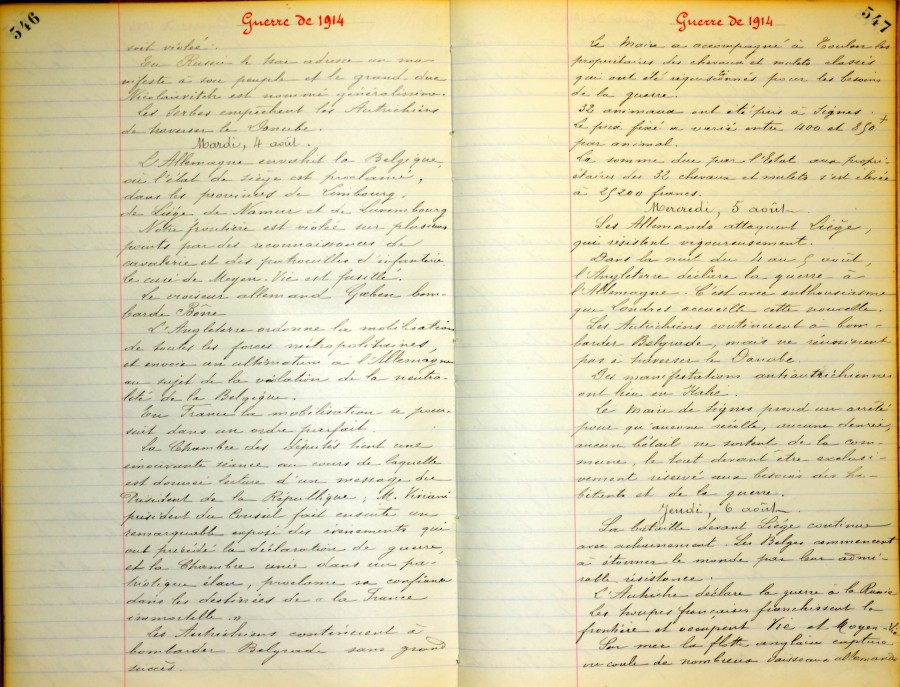 546
Guerre de 1914
soit violée.
En Russie le tsar adresse un ma-
nifeste à son peuple et le grand duc
Nicolaïevitch est nommé généralissime.
Les Serbes empêchent les Autrichiens
de traverser le Danube.
Mardi, 4 août.
L'Allemagne envahit la Belgique,
où l'état de siège est proclamé,
dans les provinces de Limbourg,
de Liège, de Namur et de Luxembourg
Notre frontière est violée sur plusieurs
points par des reconnaissances de
cavalerie et des patrouilles d'infanterie
le curé de Moyen-Vic est fusillé.
Le croiseur allemand Gœben bom-
barde Bône
L'Angleterre ordonne la mobilisation
de toutes les forces métropolitaines,
et envoie un ultimatum à l'Allemagne
au sujet de la violation de la neutra-
lité de la Belgique.
En France la mobilisation se pour-
suit dans un ordre parfait.
La Chambre des députés tient une
émouvante séance au cours de laquelle
est donnée lecture d'un message du
Président de la République; M. Viviani
président du Conseil fait ensuite un
remarquable exposé des évènements qui
ont précédé la déclaration de guerre,
et la Chambre unie dans un pa-
triotique élan, proclame sa confiance
dans les destinées de « la France
immortelle. »
Les Autrichiens continuent à
bombarder Belgrade sans grand
succès.
547
Guerre de 1914
Le Maire a accompagné à Toulon les
propriétaires des chevaux et mulets classés
qui ont été réquisitionnés pour les besoins
de la guerre.
32 animaux ont été pris à Signes.
Le prix fixé a varié entre 400 et 850 f
par animal.
La somme due par l'Etat aux proprié-
étaires des 32 chevaux et mulets s'est élevée
à 25200 francs.
Mercredi, 5 août.
Les Allemands attaquent Liège,
qui résistent vigoureusement.
Dans la nuit du 4 au 5 août,
l'Angleterre déclare la guerre à
l'Allemagne. C'est avec enthousiasme
que Londres accueille cette nouvelle.
Les Autrichiens continuent à bom-
barder Belgrade, mais ne réussissent
pas à traverser le Danube
Des manifestations antiautrichiennes
ont lieu en Italie.
Le Maire de Signes prend un arrêté
pour qu'aucune récolte, aucune denrée,
aucun bétail ne sortent de la com-
mune, le tout devant être exclusi-
vement réservé aux besoins des ha-
bitants et de la guerre.
Jeudi, 6 août.
La bataille devant Liège continue
avec acharnement. Les Belges commencent
à étonner le monde par leur admi-
rable résistance.
L'Autriche déclare la guerre à la Russie
Les troupes françaises franchissent la
frontière et occupent Vic et Moyen-Vic
Sur mer la flotte anglaise capture
ou coule de nombreux vaisseaux allemands